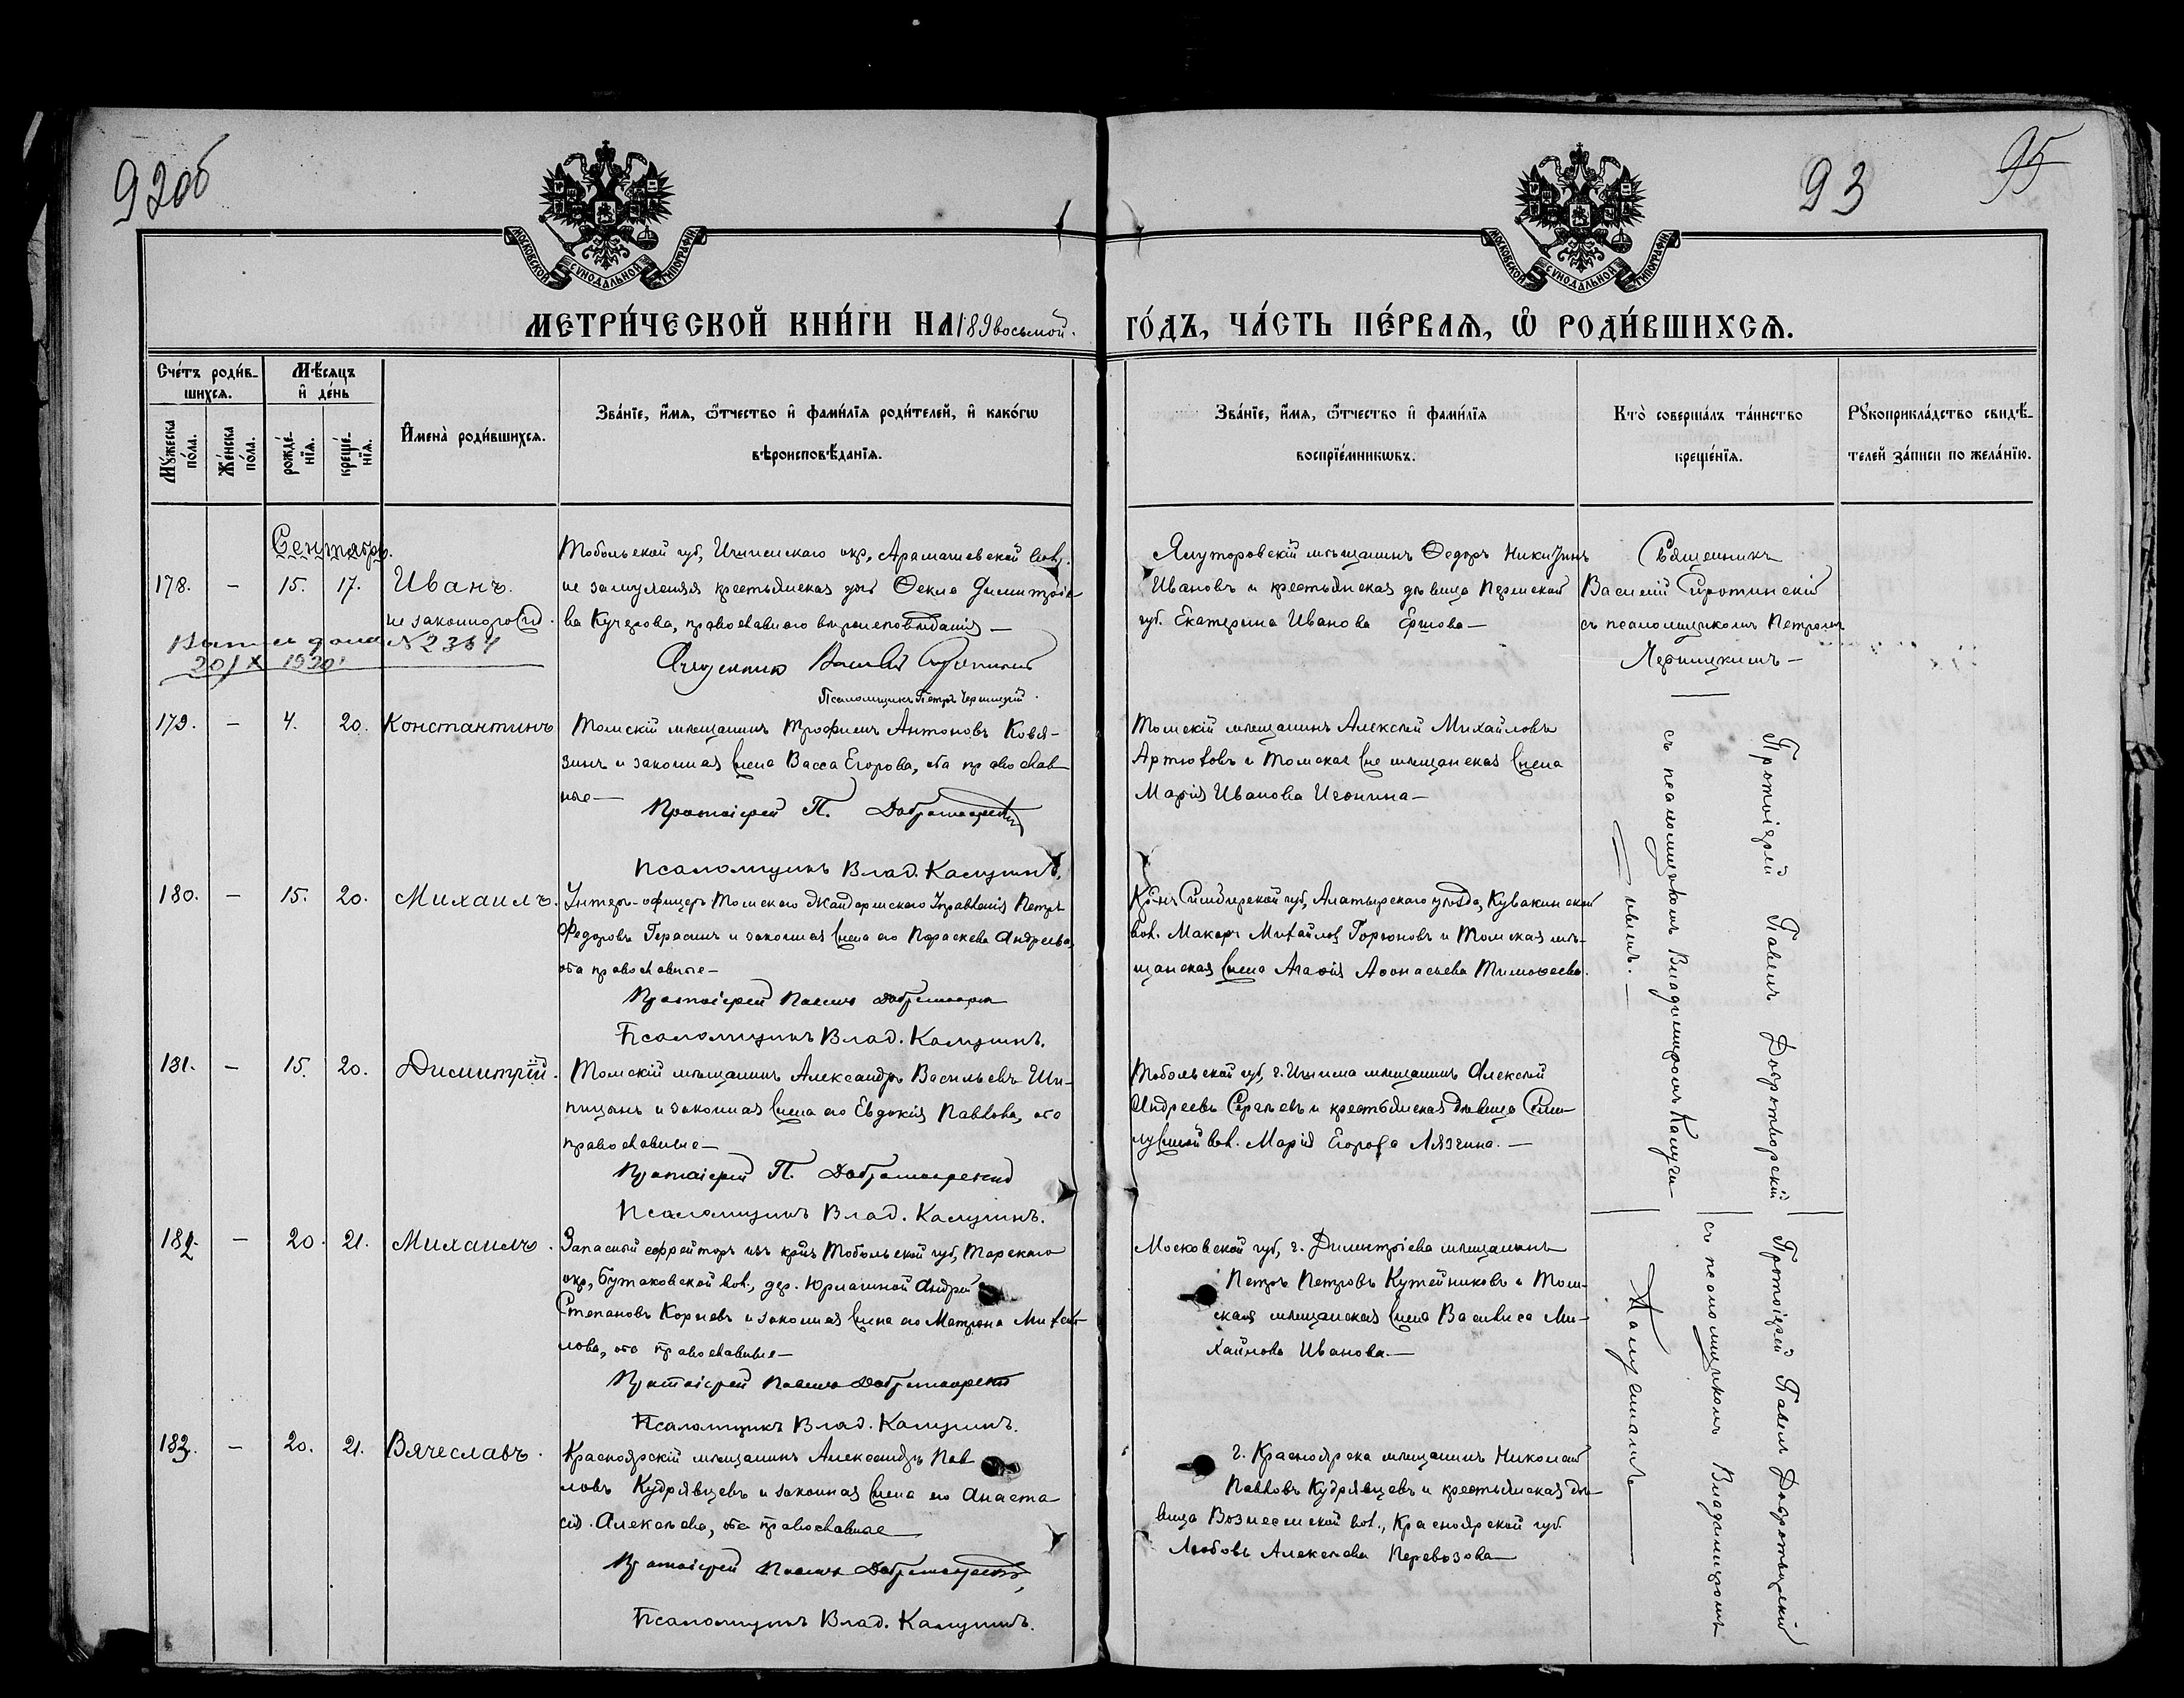 92об
93
95
МОСКОВСКОЙ СУНОДАЛЬНОЙ ТИПОГРАФІИ
МОСКОВСКОЙ СУНОДАЛЬНОЙ ТИПОГРАФІИ
МЕТРИ́ЧЕСКОЙ КНИ́ГИ НА 189восьмой.
ГО́ДЪ, ЧА́СТЬ ПЕ́РВАЯ, Ѡ РОДИ́ВШИХСЯ.
Сче́тъ роди́в-
шихся.
Мѣ́сяцъ
и҆ де́нь
Мꙋ́жеска
по́ла.
Же́нска
по́ла.
рожде́-
нїя.
креще́-
нїя.
И҆мена̀ роди́вшихся.
Зва́нїе, и҆́мя, ѻ҆́тчество и҆ фами́лїя роди́телей, и҆ како́гѡ
вѣроисповѣ́данїя.
Зва́нїе, и҆́мя, ѻ҆́тчество и҆ фами́лїя
воспрїе́мникѡвъ.
Кто̀ соверша́лъ та́инство
креще́нїя.
Рꙋкоприкла́дство свидѣ́-
телей за́писи по жела́нїю.
Сентябрь.
178. – 15. 17. Иванъ.
незаконорожд.
№ 2364
20/X 1920
Тобольской губ, Ишимскаго окр, Арамашевской вол,
не замужняя крестьянская дѣв Ѳекла Димитріе-
ва Кучерова, православнаго вѣроисповѣданія –
Священник Василій Сиротинскій
Псаломщикъ Петръ Черницкій.
Ялуторовскій мѣщанинъ Ѳедоръ Никитинъ
Ивановъ и крестьянская дѣвица Пермской
губ. Екатерина Иванова Ершова –
Священникъ
Василій Сиротинскій
съ псаломщикомъ Петромъ
Черницкимъ –
179. – 4. 20. Константинъ
Томскій мѣщанинъ Трофимъ Антоновъ Ковя-
зинъ и законная жена Васса Егорова, оба православ
ные –
Протоіерей П. Добротворскій
Псаломщикъ Влад. Калугинъ.
Томскій мѣщанинъ Алексѣй Михайловъ
Артюховъ и Томская мѣщанская жена
Марія Иванова Игонина –
Протоіерей Павелъ Добротворскій
съ псаломщикомъ Владиміромъ Калуги-
нымъ. –
180. – 15. 20. Михаилъ.
Унтеръ-офицеръ Томскаго Жандармскаго Управленія Петръ
Федоровъ Герасинъ и законная жена его Параскева Андреева,
оба православные –
Протоіерей Павелъ Добротворскій
Псаломщикъ Влад. Калугинъ.
Кр-нъ Симбирской губ, Алатырскаго уѣзда, Кувакинской
вол. Макаръ Михайловъ Горюновъ и Томская мѣ-
щанская жена Агафія Аѳонасьева Тимоѳеева.
181. – 15. 20. Димитрій.
Томскій мѣщанинъ Александръ Васильевъ Ши-
пицынъ и законная жена его Евдокія Павлова, оба
православные –
Протоіерей П. Добротворскій
Псаломщикъ Влад. Калугинъ.
Тобольской губ, г. Ишима мѣщанинъ Алексѣй
Андреевъ Сергѣевъ и крестьянская дѣвица Семи-
лужной вол. Марія Егорова Лязгина. –
182. – 20. 21. Михаилъ.
Запасный ефрейторъ изъ кр-нъ Тобольской губ, Тарскаго
окр, Бутаковской вол., дер. Юрлагиной Андрей
Степановъ Корневъ и законная жена его Матрона Михай-
лова, оба православные –
Протоіерей Павелъ Добротворскій
Псаломщикъ Влад. Калугинъ.
Московской губ, г. Димитріева мѣщанинъ
Петръ Петровъ Кутейниковъ и Том-
ская мѣщанская жена Василиса Ми-
хайлова Иванова. –
Протоіерей Павелъ Добротворскій
съ псаломщикомъ Владиміромъ
Калугинымъ
183. – 20. 21. Вячеславъ.
Красноярскій мѣщанинъ Александръ Пав
ловъ Кудрявцевъ и законная жена его Анаста
сія Алексѣева, оба православные
Протоіерей Павелъ Добротворскій
Псаломщикъ Влад. Калугинъ.
г. Красноярска мѣщанинъ Николай
Павловъ Кудрявцевъ и крестьянская дѣ-
вица Вознесенской вол., Красноярской губ.
Любовь Алексѣева Перевозова –